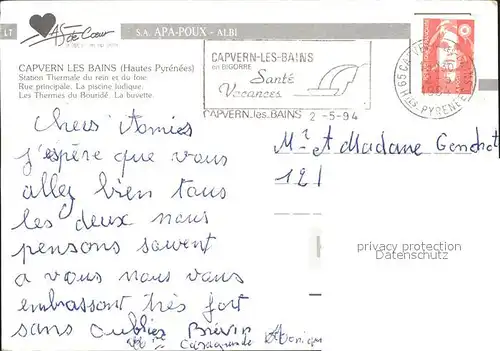 LT
As de Cœur
S.A. APA-POUX - ALBI
CAPVERN LES BAINS (Hautes Pyrénées)
Station Thermale du rein et du foie
Rue principale. La piscine ludique.
Les Thermes du Bouridé. La buvette.
CAPVERN-LES-BAINS
en BIGORRE
Santé
Vacances
CAPVERN.les.BAINS 2 -5-94
65 CA
Htes PYRENEES
Chers Amies
j'espère que vous
allez bien tous
les deux nous
pensons souvent
a vous nous vous
embrassont très fort
sans oublier
Casagrande
Mr et Madame
121
privacy protection
Datenschutz